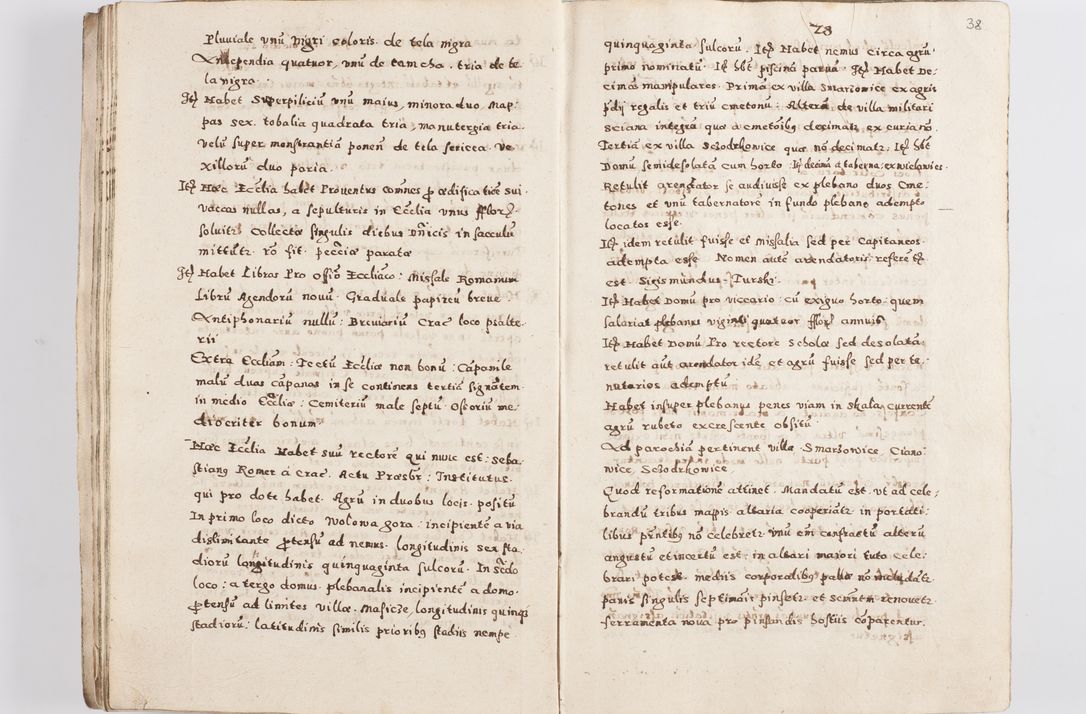 Pluuiale vnū Nigri coloris de tela nigra
Antependia quatuor, vnū de tam cha. tria de te
la nigra.
Itē Habet Superpiliciū vnū maius, minora duo, Map:
pas sex. tobalia quadrata tria, manutergia tria.
velū super monstrantiā ponen̄ de tela sericea. Ve
xillorū duo paria.
Itē Haec Ecclia habet Prouentus com̄nes p̄ aedificatiōe sui.
vaccas nullas, a sepulturis in Ecclia vnus fflor
soluitz Collecta singulis diebus Dn̄icis in sacculū
mittutz. rō fit. peccia parata
Itē Habet Libros Pro Offō Eccliaco: Missale Romanum
Librū Agendorū nouū. Graduale papireū breue
Antiphonariū nullū: Breuiariū Crac loco psalte
rii
Extra Eccliam: Tectū Eccliae non bonū: Capanile
malū duas cāpanas in se continens tertiā signātem.
in medio Eccliae: Cemiteriū male septū. Ossoriū me
diocriter bonum
Haec Ecclia Habet suū rectorē qui nunc est: Seba
stianus Romer à Crac. Actu Praesbr: Institutus
qui pro dote habet. Agrū in duobus locis. positū
In primo loco dicto Wolowa gora: incipientē a via
dislimitante p̄tensū ad nemus. longitudinis sex sta
diorū longitudinis quinquaginta sulcorū. In sc̄do
loco: a tergo domus plebanalis incipientē a domo.
p̄tensū ad limites villae. Masicze, longitudinis quinq3
stadiorū: latitudinis similis prioribus stadiis nempe
28
38
quinquaginta sulcorū. Itē Habet nemus circa agrū
primo nominatū. Itē hb̄t piscinā paruā. Itē Habet De:
cimas manipulares. Primā ex villa Smarzowice ex agris
p̄dij regalis et triū cmetonū: Alterā de villa militari
Sciana integrā qua a cmetoibus decimatz ex curia nō.
Tertiā ex villa Sczodrkowice qua nō decimatz, Itē hb̄t
Domū semidesolatā cum horto. Itē decimā a taberna ex
Retulit arendator se audiuisse ex plebano duos Cme:
tones et vnū tabernatorē in fundo plebano adempto
locatos esse.
Itē idem retulit fuisse et missalia sed per Capitaneos.
adempta esse. Nomen autē arendatoris referētē
est. Sigismundus Turski.
Itē Habet Domū pro viccario: cū exiguo horto. quem
salariat plebanus viginti quatuor fflor annuis.
Itē Habet Domū Pro rectore Scholae sed desolatā
retulit aūt arendator idē et agrū fuisse sed per te:
nutarios ademptū
Habet insuper plebanus penes viam in Skala currentē
agrū rubeto excrescente obsitū
Ad parochiā pertinent villae. Smarzowice, Ciano
wice, Sczodrkowice.
Quod reformationē attinet. Mandatū est. vt ad cele:
brandū tribus mappis altaria cooperiatz. in portati:
libus pn̄tibus nō celebretz. vnū em̄ confractū alterū
angustū et incertū est: in altari maiori tuto cele:
brari potest mediis corporalibus palla nō mutādātz
panis singulis septimāis pinsetz. et Scrm̄tm renouetz
ferramenta noua pro pinsandis hostiis cōparentur.